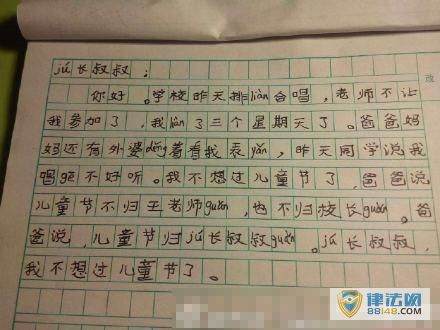 jú长叔叔：
你好。学校昨天排liàn合唱，老师不让
我参加了，我liàn了三个星期天了。爸爸妈
妈还有外婆děng着看我表yǎn，昨天同学说我
唱gē不好听。我不想过儿童节了，爸爸说
儿童节不归王老师guǎn，也不归校长guǎn。爸
爸说，儿童节归jú长叔叔guǎn。jú长叔叔，
我不想过儿童节了。
改
律法网
88148.com